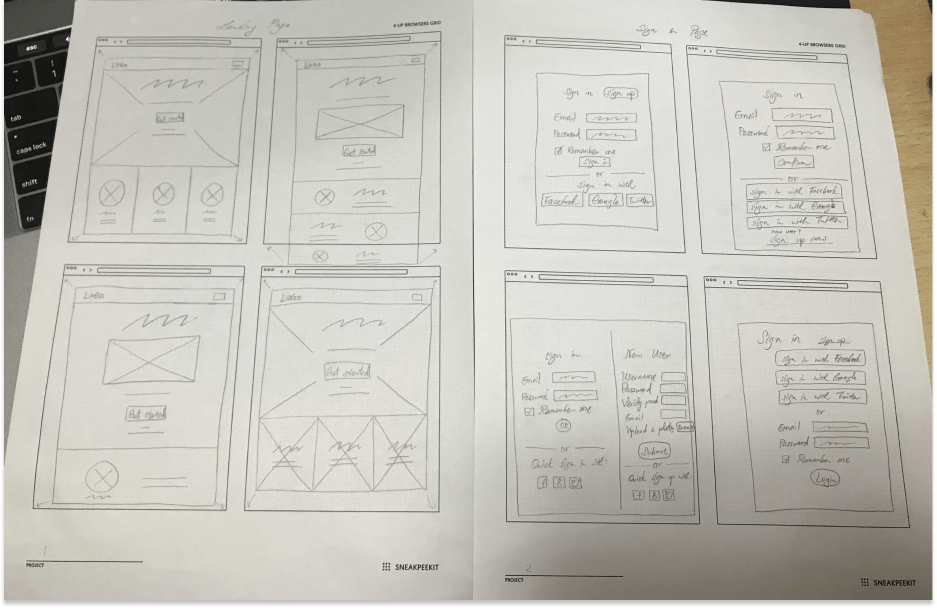 esc
~
!
1
tab
caps lock
shift
fn
Landing Page
4-UP BROWSERS GRID
Logo
Get started
Logo
Get started
Logo
Get started
Logo
Get started
1
PROJECT
SNEAKPEEKIT
Sign in Page
4-UP BROWSERS GRID
Sign in Sign up
Email
Password
Remember me
Sign in
or
Sign in with
Facebook Google Twitter
Sign in
Email
Password
Remember me
Confirm
or
sign in with Facebook
sign in with Google
sign in with Twitter
new user?
Sign up now
Sign in
Email
Password
Remember me
OK
or
Quick Sign in with:
New User
Username
Password
Verify pswd
Email
Upload a photo
Submit
or
Quick Sign up with
Sign in Sign up
sign in with Facebook
sign in with Google
sign in with Twitter
or
Email
Password
Remember me
Login
2
PROJECT
SNEAKPEEKIT